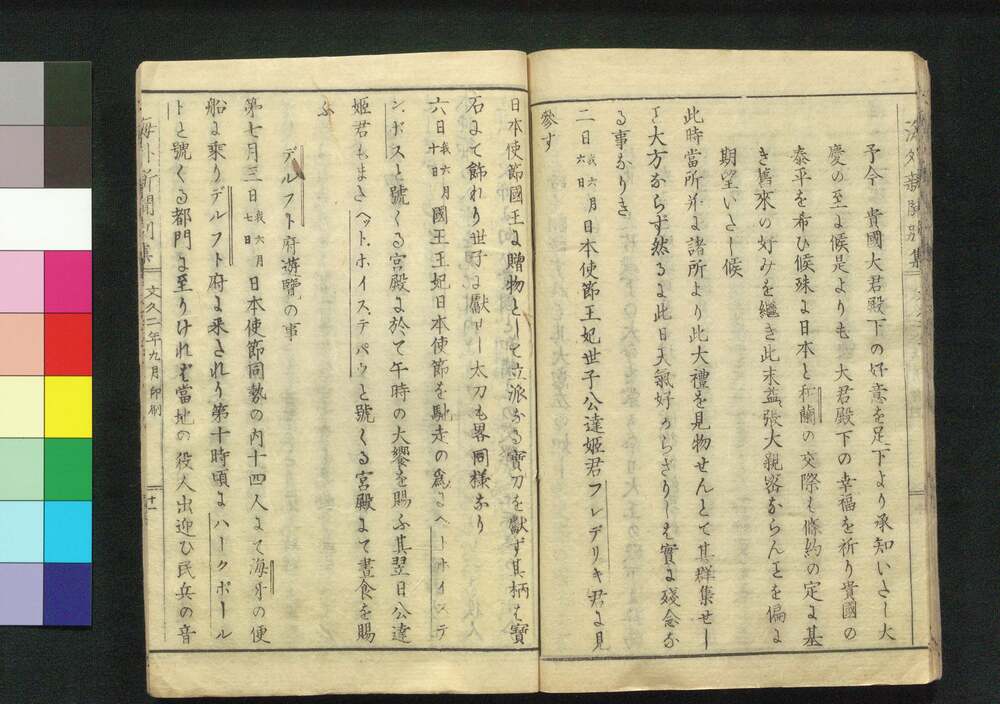 予今 貴國大君殿下の好意を足下より承知いさし大
慶の至に候是よりも 大君殿下の幸福を祈り貴國の
泰平を希ひ候殊に日本と和蘭の交際も條約の定に基
き舊來の好みを繼き此末益張大親密ならんことを偏に
期望いさし候
此時當所并に諸所より此大禮を見物せんとて其群集せし
こと大方ならず然るに此日天氣好からざりしも實に殘念な
る事なりき
二日我六月六日日本使節王妃世子公達姬君フレデリキ君に見
參す
日本使節國王に贈物として立派なる寶刀を獻ず其柄も寶
石にて飾れり世子に獻せし太刀も畧同樣なり
六日我六月十日國王王妃日本使節を馳走の爲にヘートホイステ
ンボスと號くる宮殿に於て午時の大饗を賜ふ其翌日公達
姬君もまさヘット、ホイス、テパウと號くる宮殿にて晝食を賜
ふ
デルフト府遊覽の事
第七月三日我六月七日日本使節同勢の内十四人にて海牙の便
船に乘りデルフト府に來されり第十時頃にハークポール
トと號くる都門に至りけれど當地の役人出迎ひ民兵の音
海外新聞別集
文久二年九月印刷
十一
海外新聞別集